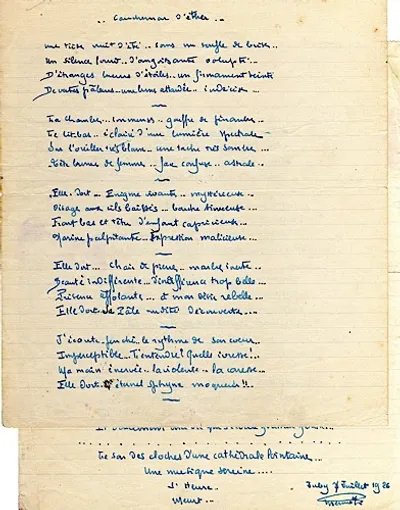 .. Cauchemar d'éther ..
Une tiède nuit d'été .. sans un souffle de brise..
Un silence lourd .. d'angoissante volupté ..
D'étranges lueurs d'étoiles .. un firmament teinte
De vertes pâleurs .. une lune attardée .. indécise ..
La chambre .. immense .. gouffre de pénombre ..
Le lit bas .. éclairé d'une lumière spectrale
Sur l'oreiller très blanc .. une tache très sombre ...
Tête brune de femme .. face confuse .. astrale ..
Elle dort .. Enigme vivante .. mystérieuse ..
Visage aux cils baissés .. bouche sinueuse ...
Front bas et têtu d'enfant capricieuse ...
Narine palpitante .. Expression malicieuse ...
Elle dort ... Chair de pierre .. marbre inerte ..
Beauté indifférente .. d'indifférence trop belle ...
Présence affolante .. et mon désir rebelle ...
Elle dort .. Pâle nudité découverte ...
J'écoute .. penché .. le rythme de son coeur ..
Imperceptible .. T'entendre ! Quelle ivresse ! ..
Ma main énervée .. la violente .. la caresse ...
Elle dort .. éternel sphynx moqueur !! ..
Le son des cloches d'une cathédrale lointaine ...
Une musique sereine ....
L'Heure
Meurt ...
Juby 7 Juillet 1926